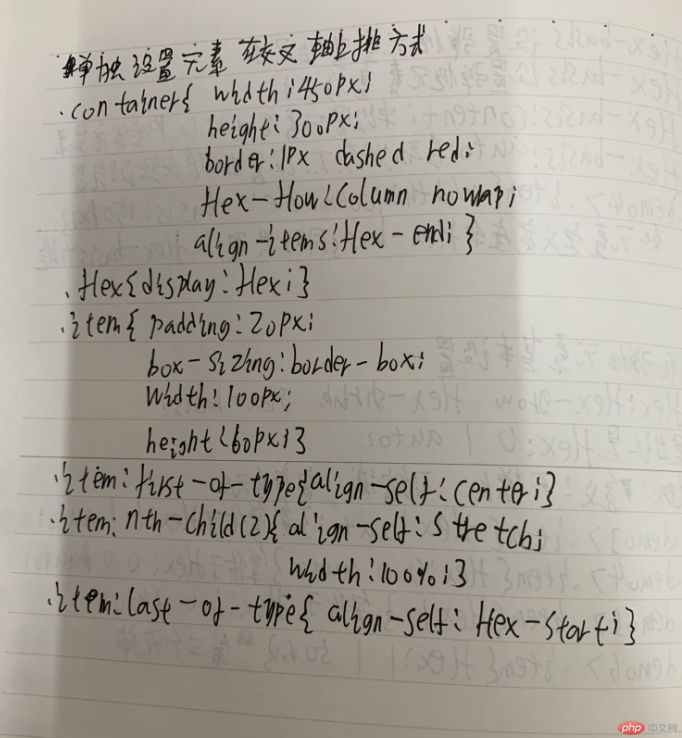 单独设置元素在交叉轴上排方式
.container{ width:450px;
height:300px;
border:1px dashed red;
flex-flow:column nowrap;
align-items:flex-end;}
.flex{display:flex;}
.item{padding:20px;
box-sizing:border-box;
width:100px;
height:60px;}
.item:first-of-type{align-self:center;}
.item:nth-child(2){align-self:stretch;
width:100%;}
.item:last-of-type{align-self:flex-start;}
php 中文网